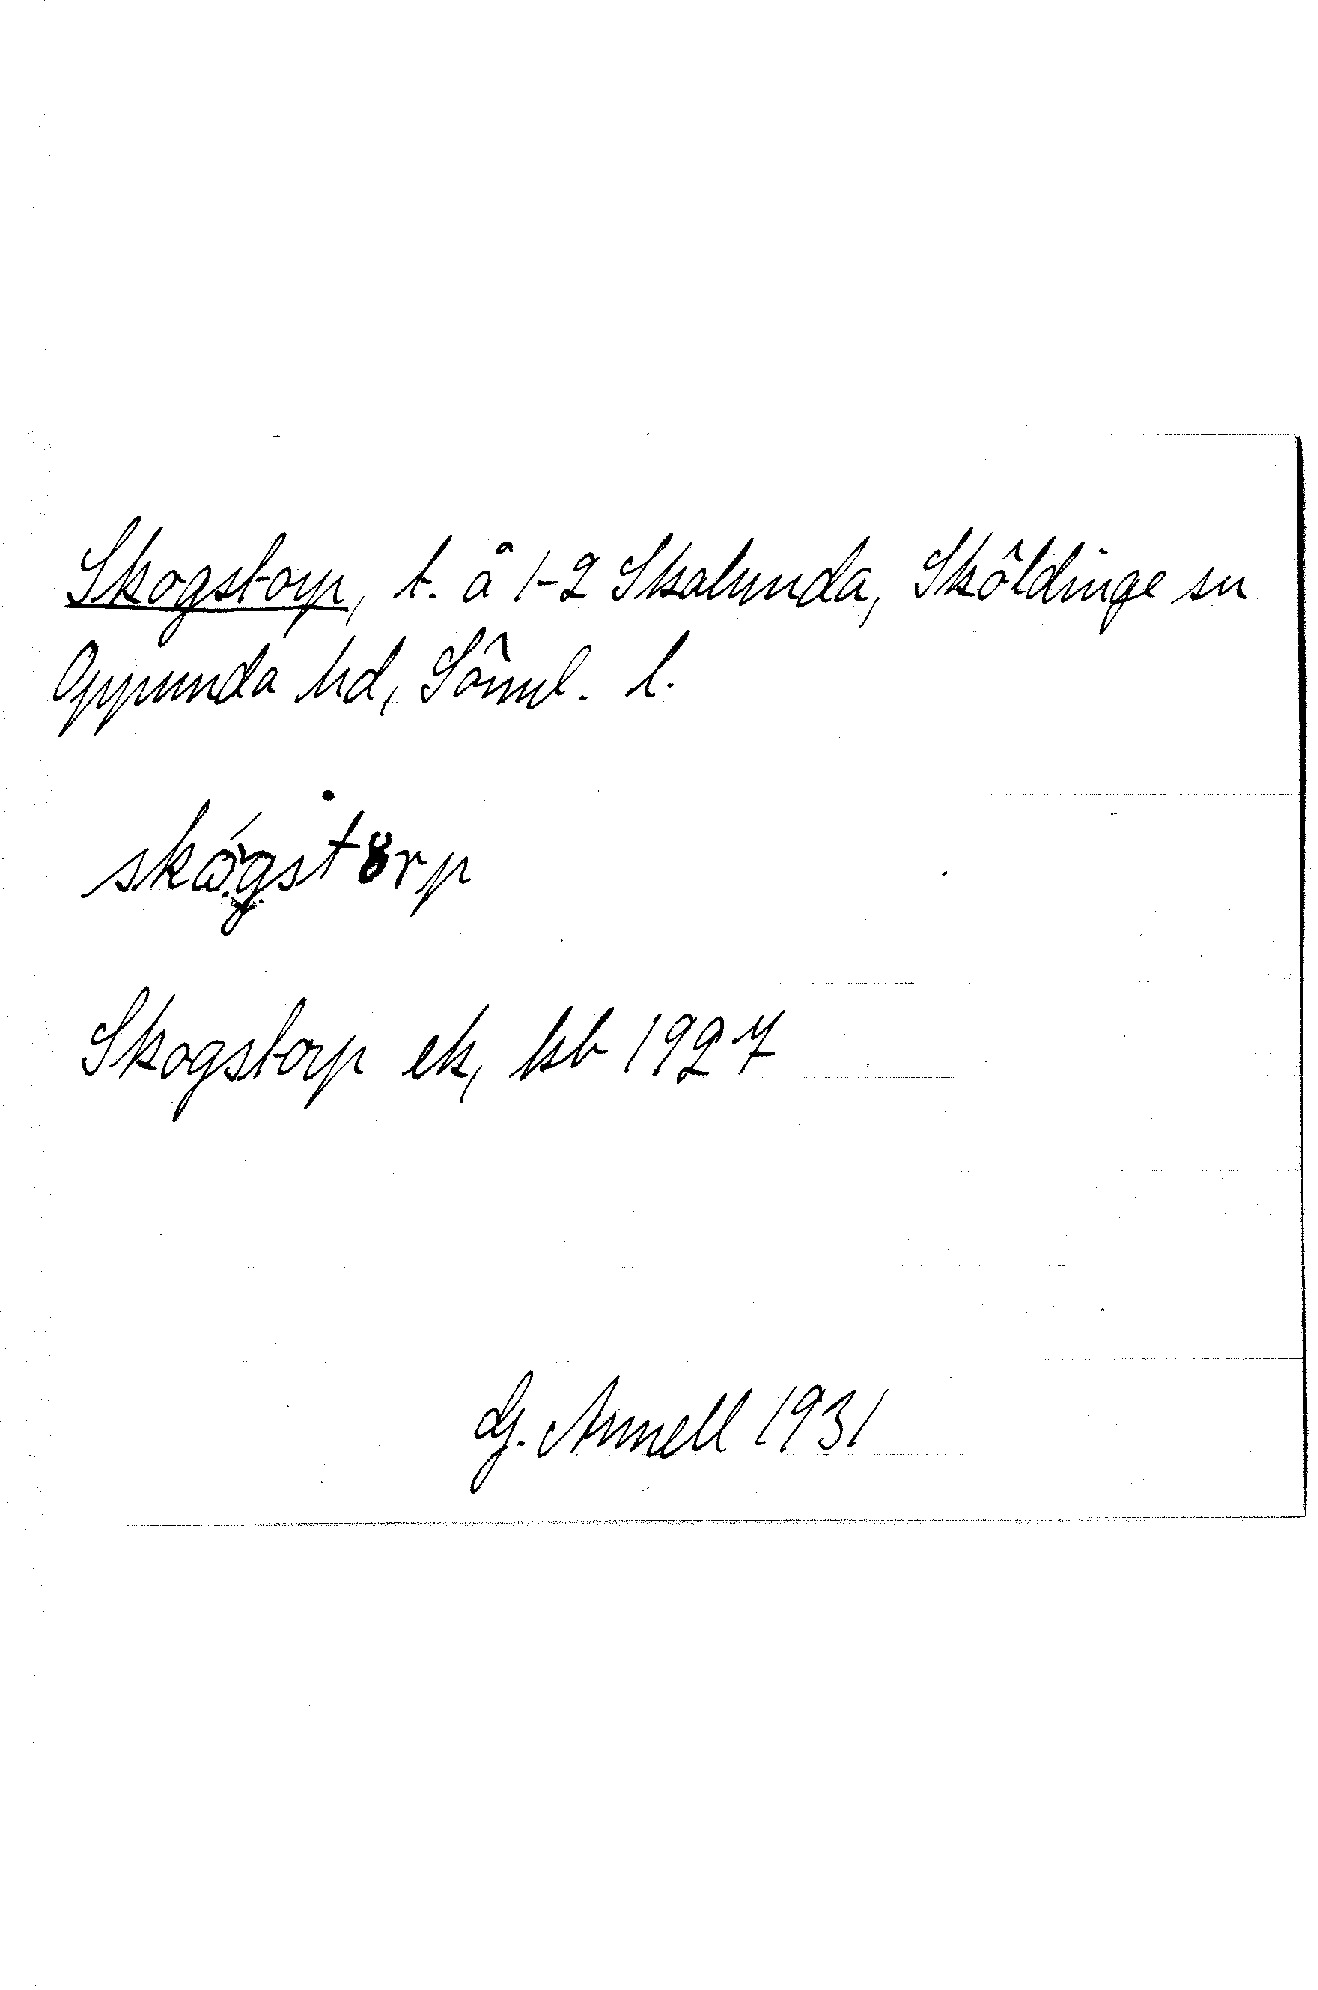 Skogstorp, t. å 1-2 Skalunda, Sköldinge sn
Oppunda hd, Söml. l.
skógst8rp
Skogstorp ek, kb 1927
G. Annell 1931